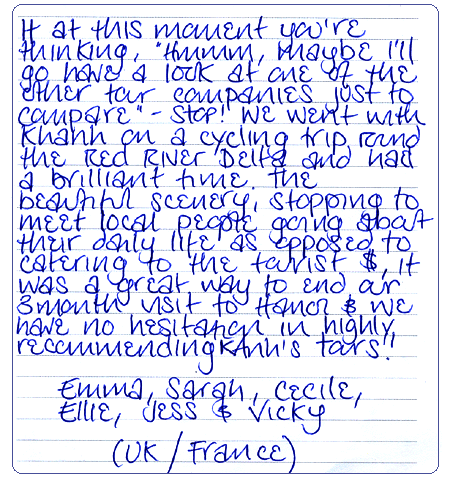 If at this moment you're
thinking, "Hmmm, maybe I'll
go have a look at one of the
other tour companies just to
compare" - STOP! We went with
Khanh on a cycling trip round
the Red River Delta and had
a brilliant time. The
beautiful scenery, stopping to
meet local people going about
their daily life as opposed to
catering to the tourist $, it
was a great way to end our
3month visit to Hanoi & we
have no hesitation in highly
recommending Khanh's tours!!
Emma, Sarah, Cecile,
Ellie, Jess & Vicky
(UK / France)